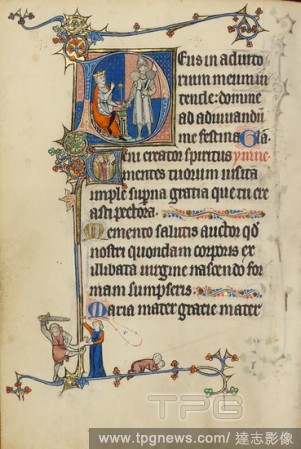 Deus in adiuto
rium meum in
tende: domine
ad adiuuandu
me festina Gła.
Veni creator spiritus ymne
mentes tuorum uisita
imple superna gratia que tu cre
asti pectora.
Memento salutis auctor qd
nostri quondam corporis ex
illibata uirgine nascendo for
mam sumpseris.
Maria mater gracie mater
TPG
www.tpgnews.com/達志影像